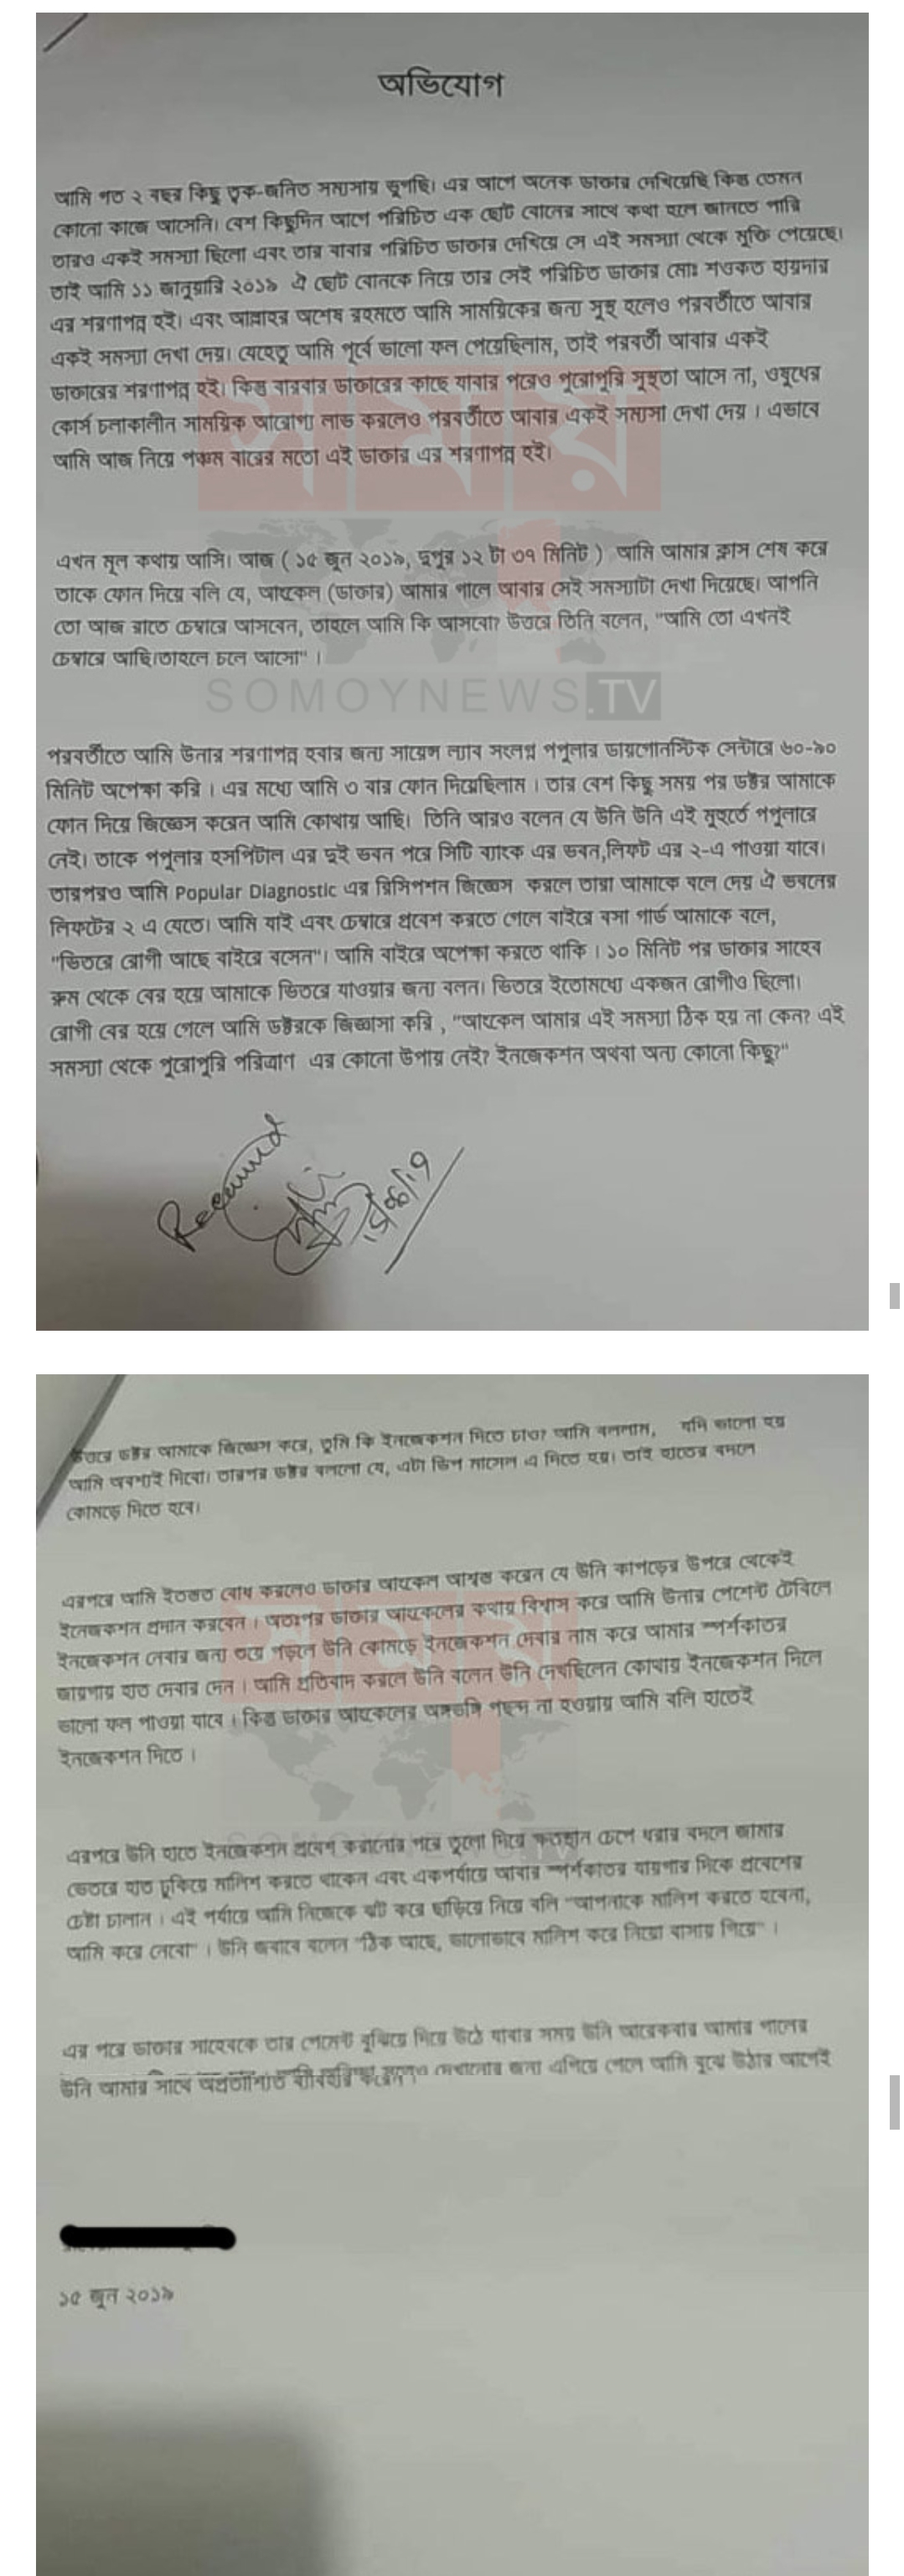 অভিযোগ
আমি গত ২ বছর কিছু ত্বক-জনিত সমস্যায় ভুগছি। এর আগে অনেক ডাক্তার দেখিয়েছি কিন্তু তেমন
কোনো কাজে আসেনি। বেশ কিছুদিন আগে পরিচিত এক ছোট বোনের সাথে কথা হলে জানতে পারি
তারও একই সমস্যা ছিলো এবং তার বাবার পরিচিত ডাক্তার দেখিয়ে সে এই সমস্যা থেকে মুক্তি পেয়েছে।
তাই আমি ১১ জানুয়ারি ২০১৯ ঐ ছোট বোনকে নিয়ে তার সেই পরিচিত ডাক্তার মোঃ শওকত হায়দার
এর শরণাপন্ন হই। এবং আল্লাহর অশেষ রহমতে আমি সাময়িকের জন্য সুস্থ হলেও পরবর্তীতে আবার
একই সমস্যা দেখা দেয়। যেহেতু আমি পূর্বে ভালো ফল পেয়েছিলাম, তাই পরবর্তী আবার একই
ডাক্তারের শরণাপন্ন হই। কিন্তু বারবার ডাক্তারের কাছে যাবার পরেও পুরোপুরি সুস্থতা আসে না, ওষুধের
কোর্স চলাকালীন সাময়িক আরোগ্য লাভ করলেও পরবর্তীতে আবার একই সম্যসা দেখা দেয় । এভাবে
আমি আজ নিয়ে পঞ্চম বারের মতো এই ডাক্তার এর শরণাপন্ন হই।
এখন মূল কথায় আসি। আজ ( ১৫ জুন ২০১৯, দুপুর ১২ টা ৩৭ মিনিট ) আমি আমার ক্লাস শেষ করে
তাকে ফোন দিয়ে বলি যে, আংকেল (ডাক্তার) আমার গালে আবার সেই সমস্যাটা দেখা দিয়েছে। আপনি
তো আজ রাতে চেম্বারে আসবেন, তাহলে আমি কি আসবো? উত্তরে তিনি বলেন, "আমি তো এখনই
চেম্বারে আছি।তাহলে চলে আসো" ।
SOMOYNEWS.TV
পরবর্তীতে আমি উনার শরণাপন্ন হবার জন্য সায়েন্স ল্যাব সংলগ্ন পপুলার ডায়গোনস্টিক সেন্টারে ৬০-৯০
মিনিট অপেক্ষা করি । এর মধ্যে আমি ৩ বার ফোন দিয়েছিলাম । তার বেশ কিছু সময় পর ডক্টর আমাকে
ফোন দিয়ে জিজ্ঞেস করেন আমি কোথায় আছি। তিনি আরও বলেন যে উনি উনি এই মুহূর্তে পপুলারে
নেই। তাকে পপুলার হসপিটাল এর দুই ভবন পরে সিটি ব্যাংক এর ভবন,লিফট এর ২-এ পাওয়া যাবে।
তারপরও আমি Popular Diagnostic এর রিসিপশন জিজ্ঞেস করলে তারা আমাকে বলে দেয় ঐ ভবনের
লিফটের ২ এ যেতে। আমি যাই এবং চেম্বারে প্রবেশ করতে গেলে বাইরে বসা গার্ড আমাকে বলে,
"ভিতরে রোগী আছে বাইরে বসেন"। আমি বাইরে অপেক্ষা করতে থাকি । ১০ মিনিট পর ডাক্তার সাহেব
রুম থেকে বের হয়ে আমাকে ভিতরে যাওয়ার জন্য বলন। ভিতরে ইতোমধ্যে একজন রোগীও ছিলো।
রোগী বের হয়ে গেলে আমি ডক্টরকে জিজ্ঞাসা করি , "আংকেল আমার এই সমস্যা ঠিক হয় না কেন? এই
সমস্যা থেকে পুরোপুরি পরিত্রাণ এর কোনো উপায় নেই? ইনজেকশন অথবা অন্য কোনো কিছু?"
Received
উত্তরে ডক্টর আমাকে জিজ্ঞেস করে, তুমি কি ইনজেকশন দিতে চাও? আমি বললাম, যদি ভালো হয়
আমি অবশ্যই দিবো। তারপর ডক্টর বললো যে, এটা ডিপ মাসেল এ দিতে হয়। তাই হাতের বদলে
কোমড়ে দিতে হবে।
এরপরে আমি ইতস্তত বোধ করলেও ডাক্তার আংকেল আশ্বস্ত করেন যে উনি কাপড়ের উপরে থেকেই
ইনেজকশন প্রদান করবেন । অতঃপর ডাক্তার আংকেলের কথায় বিশ্বাস করে আমি উনার পেশেন্ট টেবিলে
ইনজেকশন নেবার জন্য শুয়ে পড়লে উনি কোমড়ে ইনজেকশন দেবার নাম করে আমার স্পর্শকাতর
জায়গায় হাত দেবার দেন । আমি প্রতিবাদ করলে উনি বলেন উনি দেখছিলেন কোথায় ইনজেকশন দিলে
ভালো ফল পাওয়া যাবে । কিন্তু ডাক্তার আংকেলের অঙ্গভঙ্গি পছন্দ না হওয়ায় আমি বলি হাতেই
ইনজেকশন দিতে ।
এরপরে উনি হাতে ইনজেকশন প্রবেশ করানোর পরে তুলো দিয়ে ক্ষতস্থান চেপে ধরার বদলে জামার
ভেতরে হাত ঢুকিয়ে মালিশ করতে থাকেন এবং একপর্যায়ে আবার স্পর্শকাতর যায়গার দিকে প্রবেশের
চেষ্টা চালান । এই পর্যায়ে আমি নিজেকে ঝট করে ছাড়িয়ে নিয়ে বলি "আপনাকে মালিশ করতে হবেনা,
আমি করে নেবো" । উনি জবাবে বলেন "ঠিক আছে, ভালোভাবে মালিশ করে নিয়ো বাসায় গিয়ে" ।
এর পরে ডাক্তার সাহেবকে তার পেমেন্ট বুঝিয়ে দিয়ে উঠে যাবার সময় উনি আরেকবার আমার গালের
দেখানোর জন্য এগিয়ে গেলে আমি বুঝে উঠার আগেই
উনি আমার সাথে অপ্রত্যাশিত ব্যবহার করেন ।
১৫ জুন ২০১৯